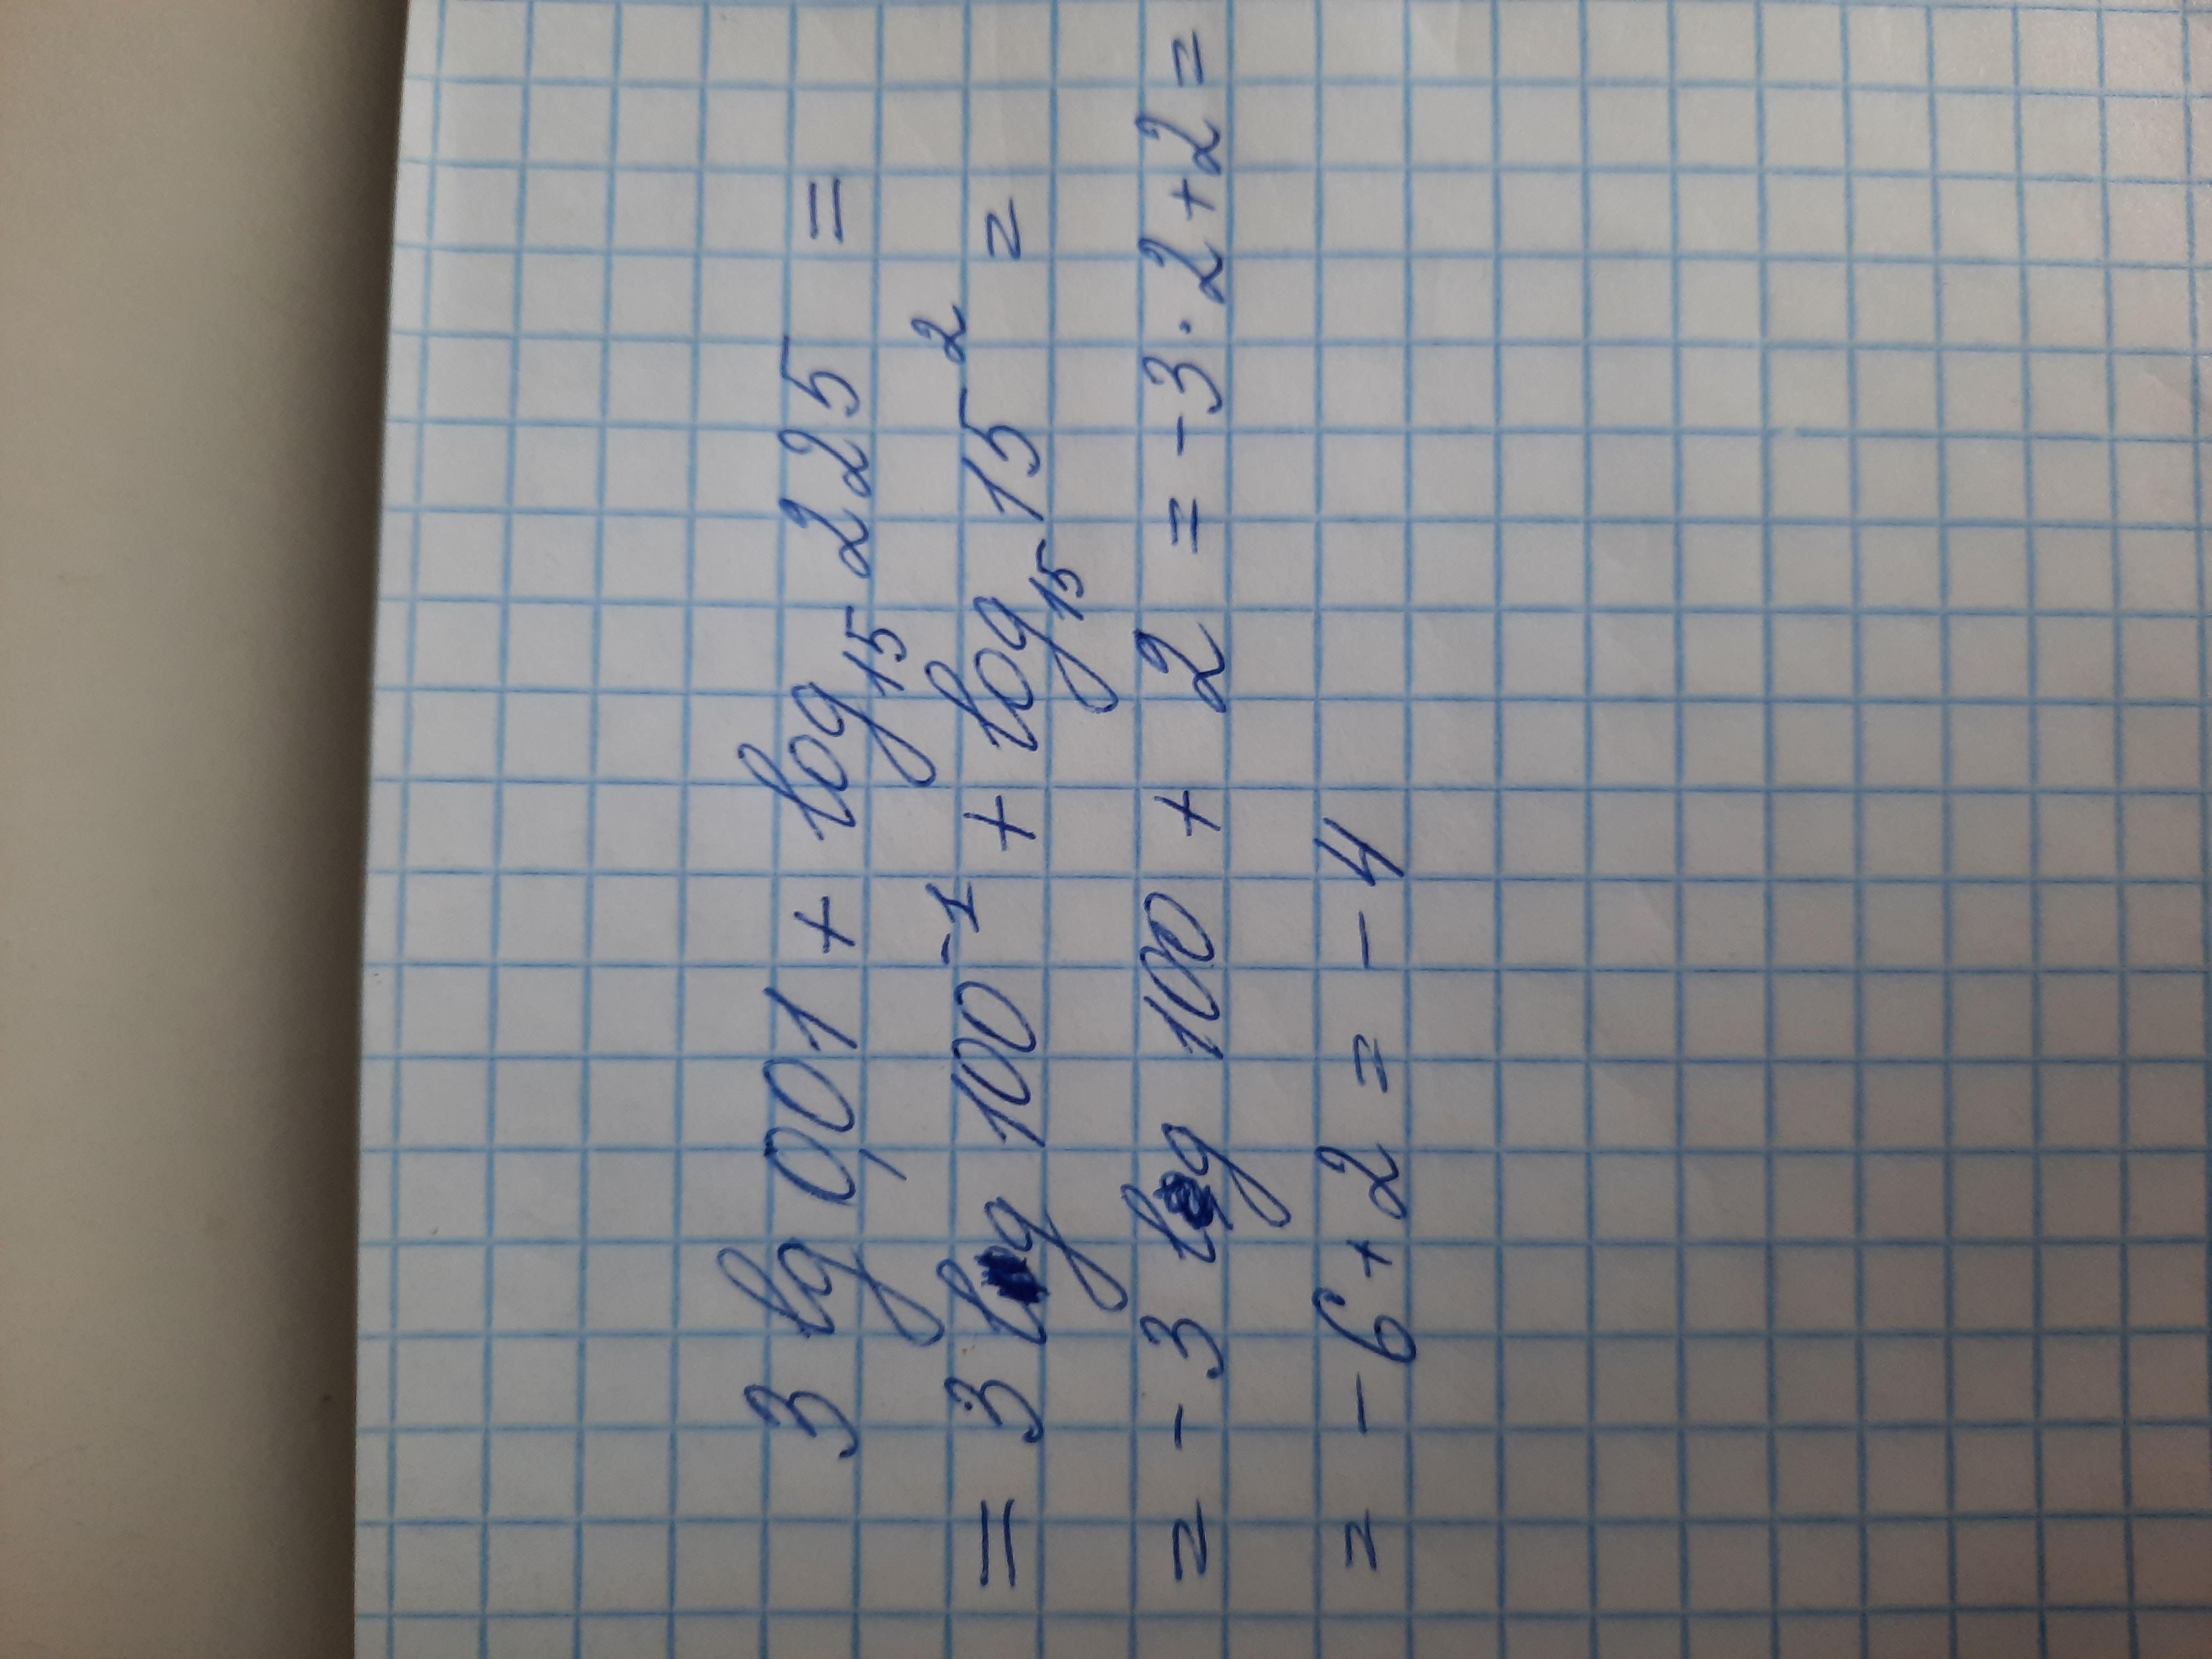 3 lg 0,01 + log₁₅ 225 =
= 3 lg 100⁻¹ + log₁₅ 15² =
= - 3 lg 100 + 2 = -3 · 2 + 2 =
= - 6 + 2 = - 4